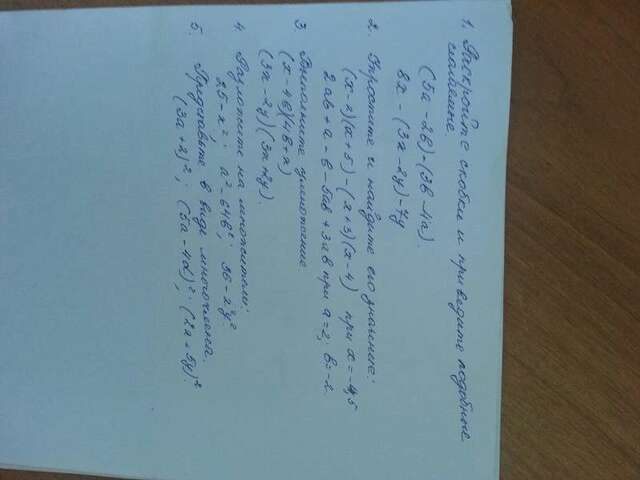 1. Раскройте скобки и приведите подобные
слагаемые.
(5а - 2в) - (3в - 4а).
8х - (3х - 2у) - 7у
2. Упростите и найдите его значение:
(х - 2)(х + 5) - (х + 3)(х - 4) при х = -4,5
2ав + а - в - 5ав + 3ав при а = 2; в = -1.
3 Выполните умножение
(х - 4в)(4в + х)
(3х - 2у)(3х + 2у).
4. Разложите на множители:
25 - х²; а² - 64в²; 36 - х²у²
5. Представьте в виде многочлена.
(3а + 2)²; (5а - 4х)²; (2х + 5у)²